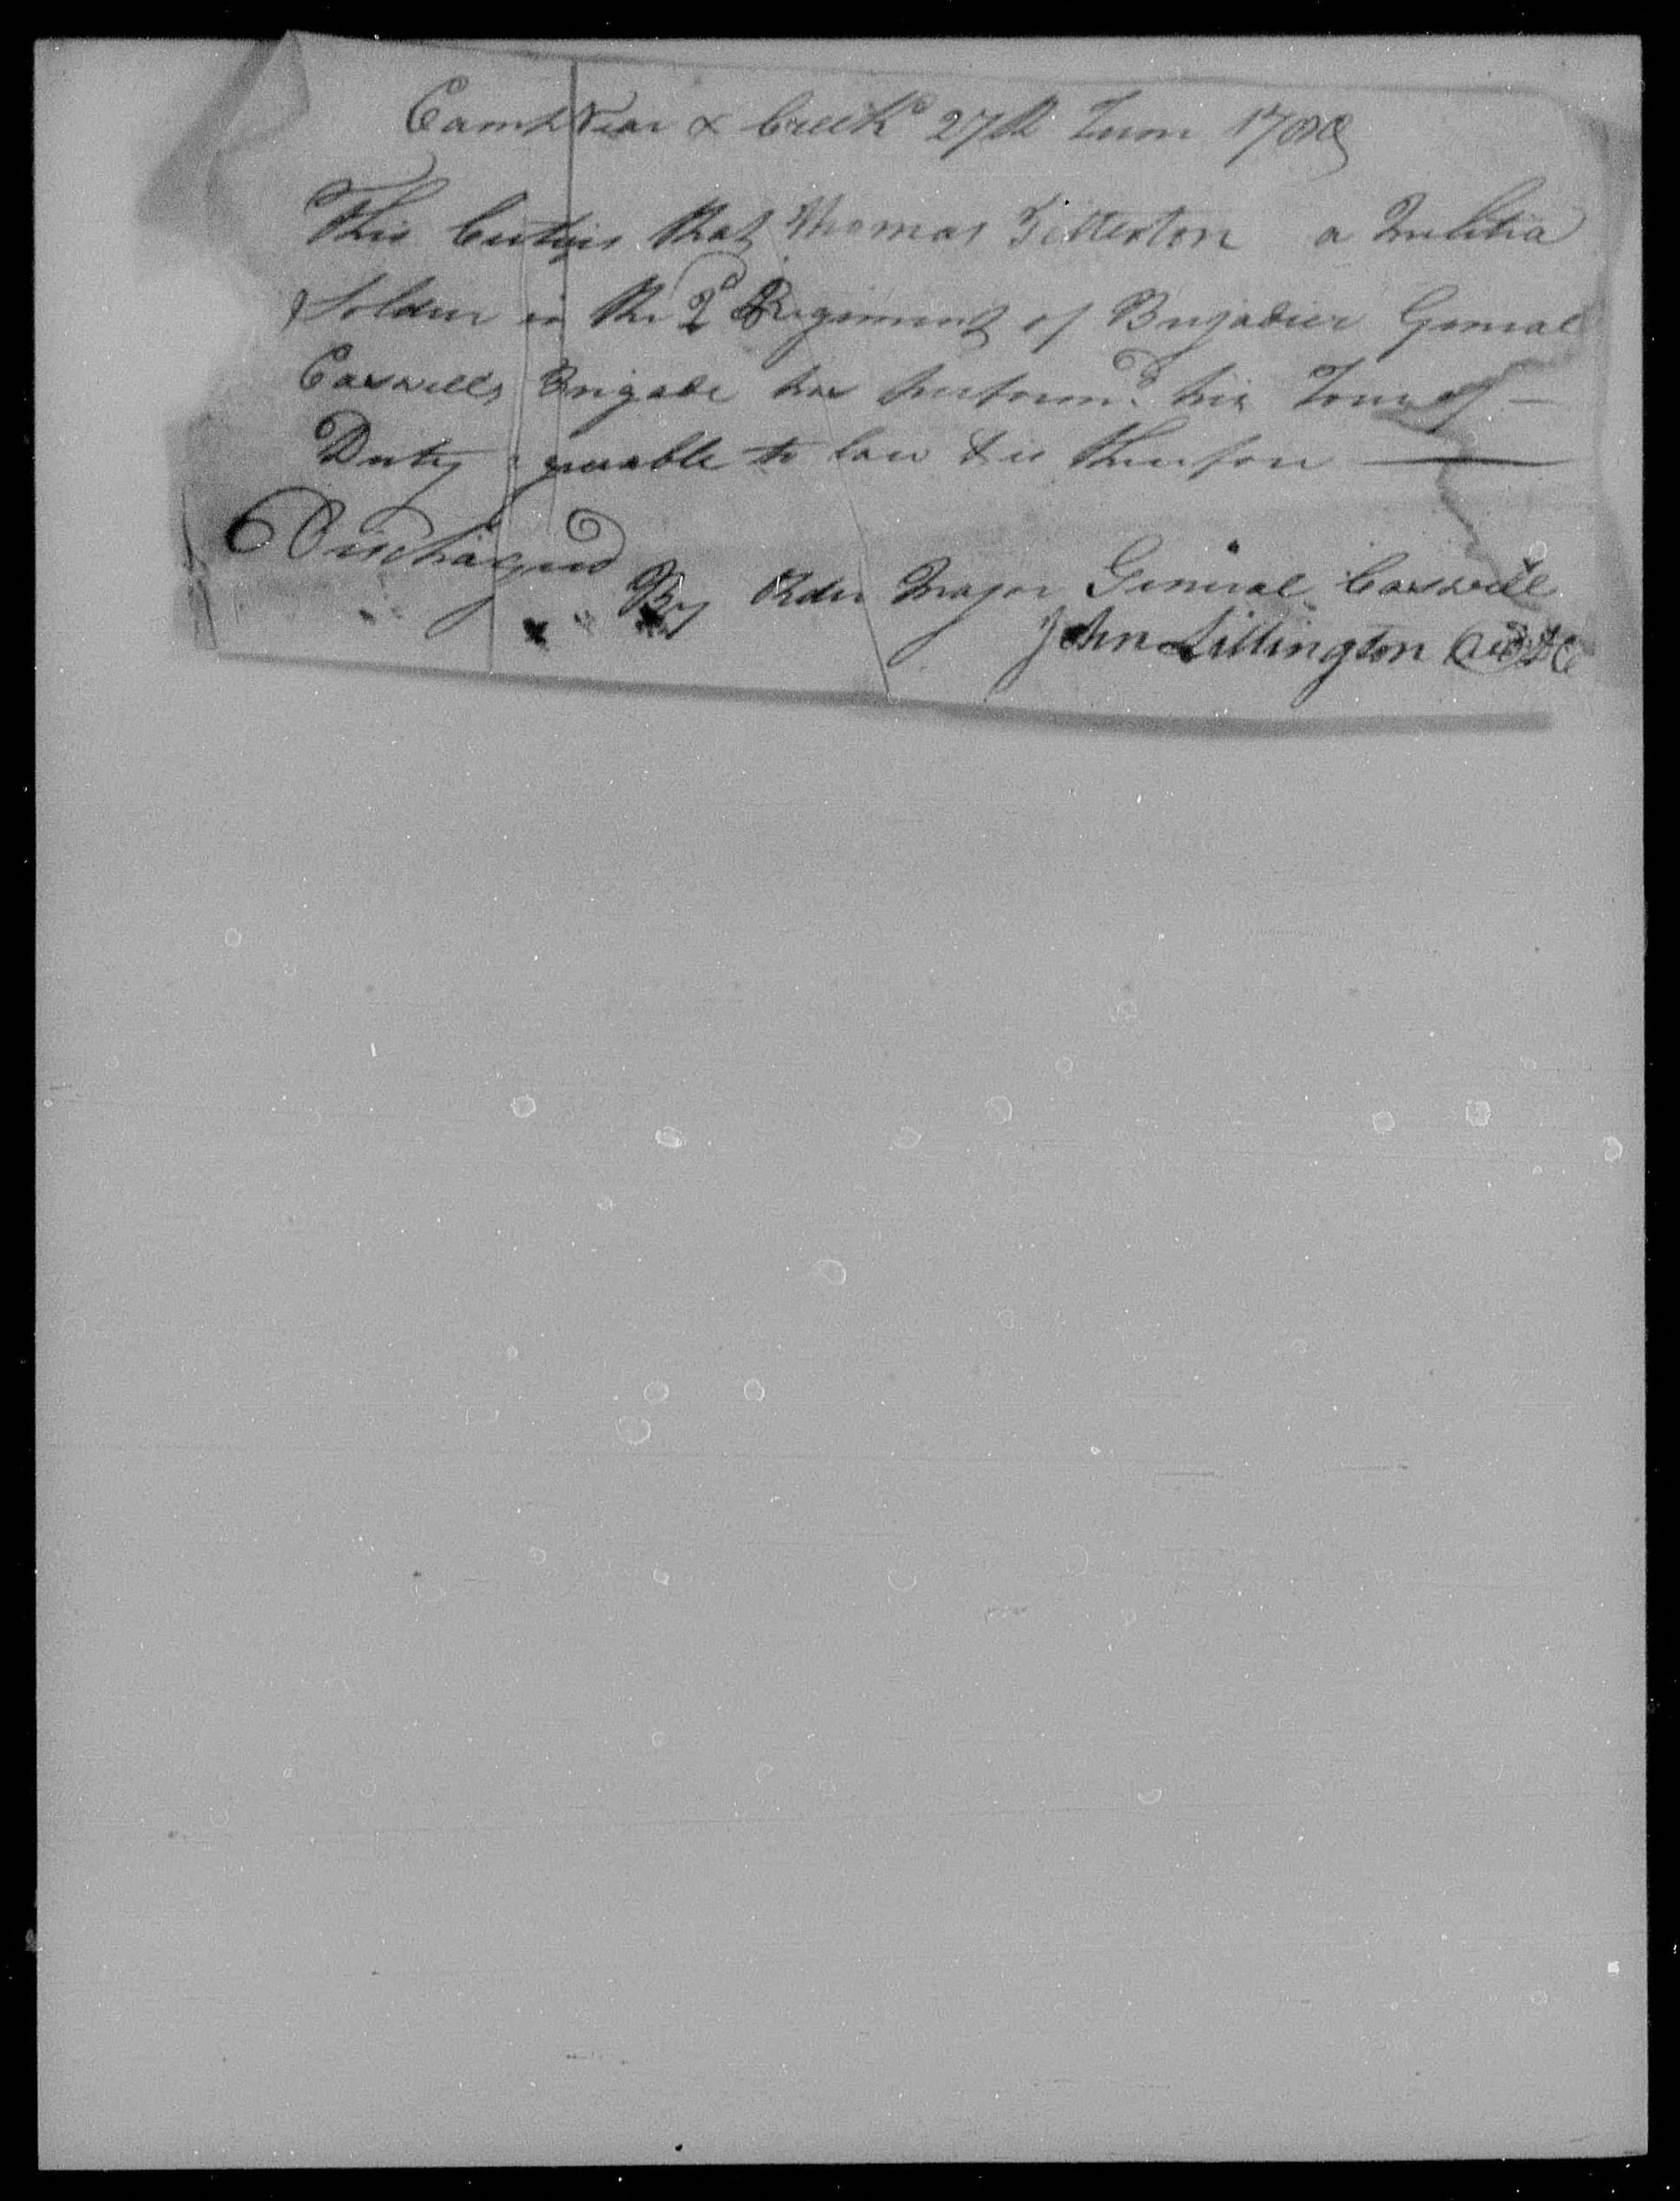 Camp Near X Creek 27th June 1780
This Certifies that Thomas Titterton a Militia
Soldier in the 2d Regiment of Brigadier General
Caswells Brigade has perform'd his Tour of —
Duty agreeable to law & is therefore —
Discharged
By Order Major General Caswell
John Lillington